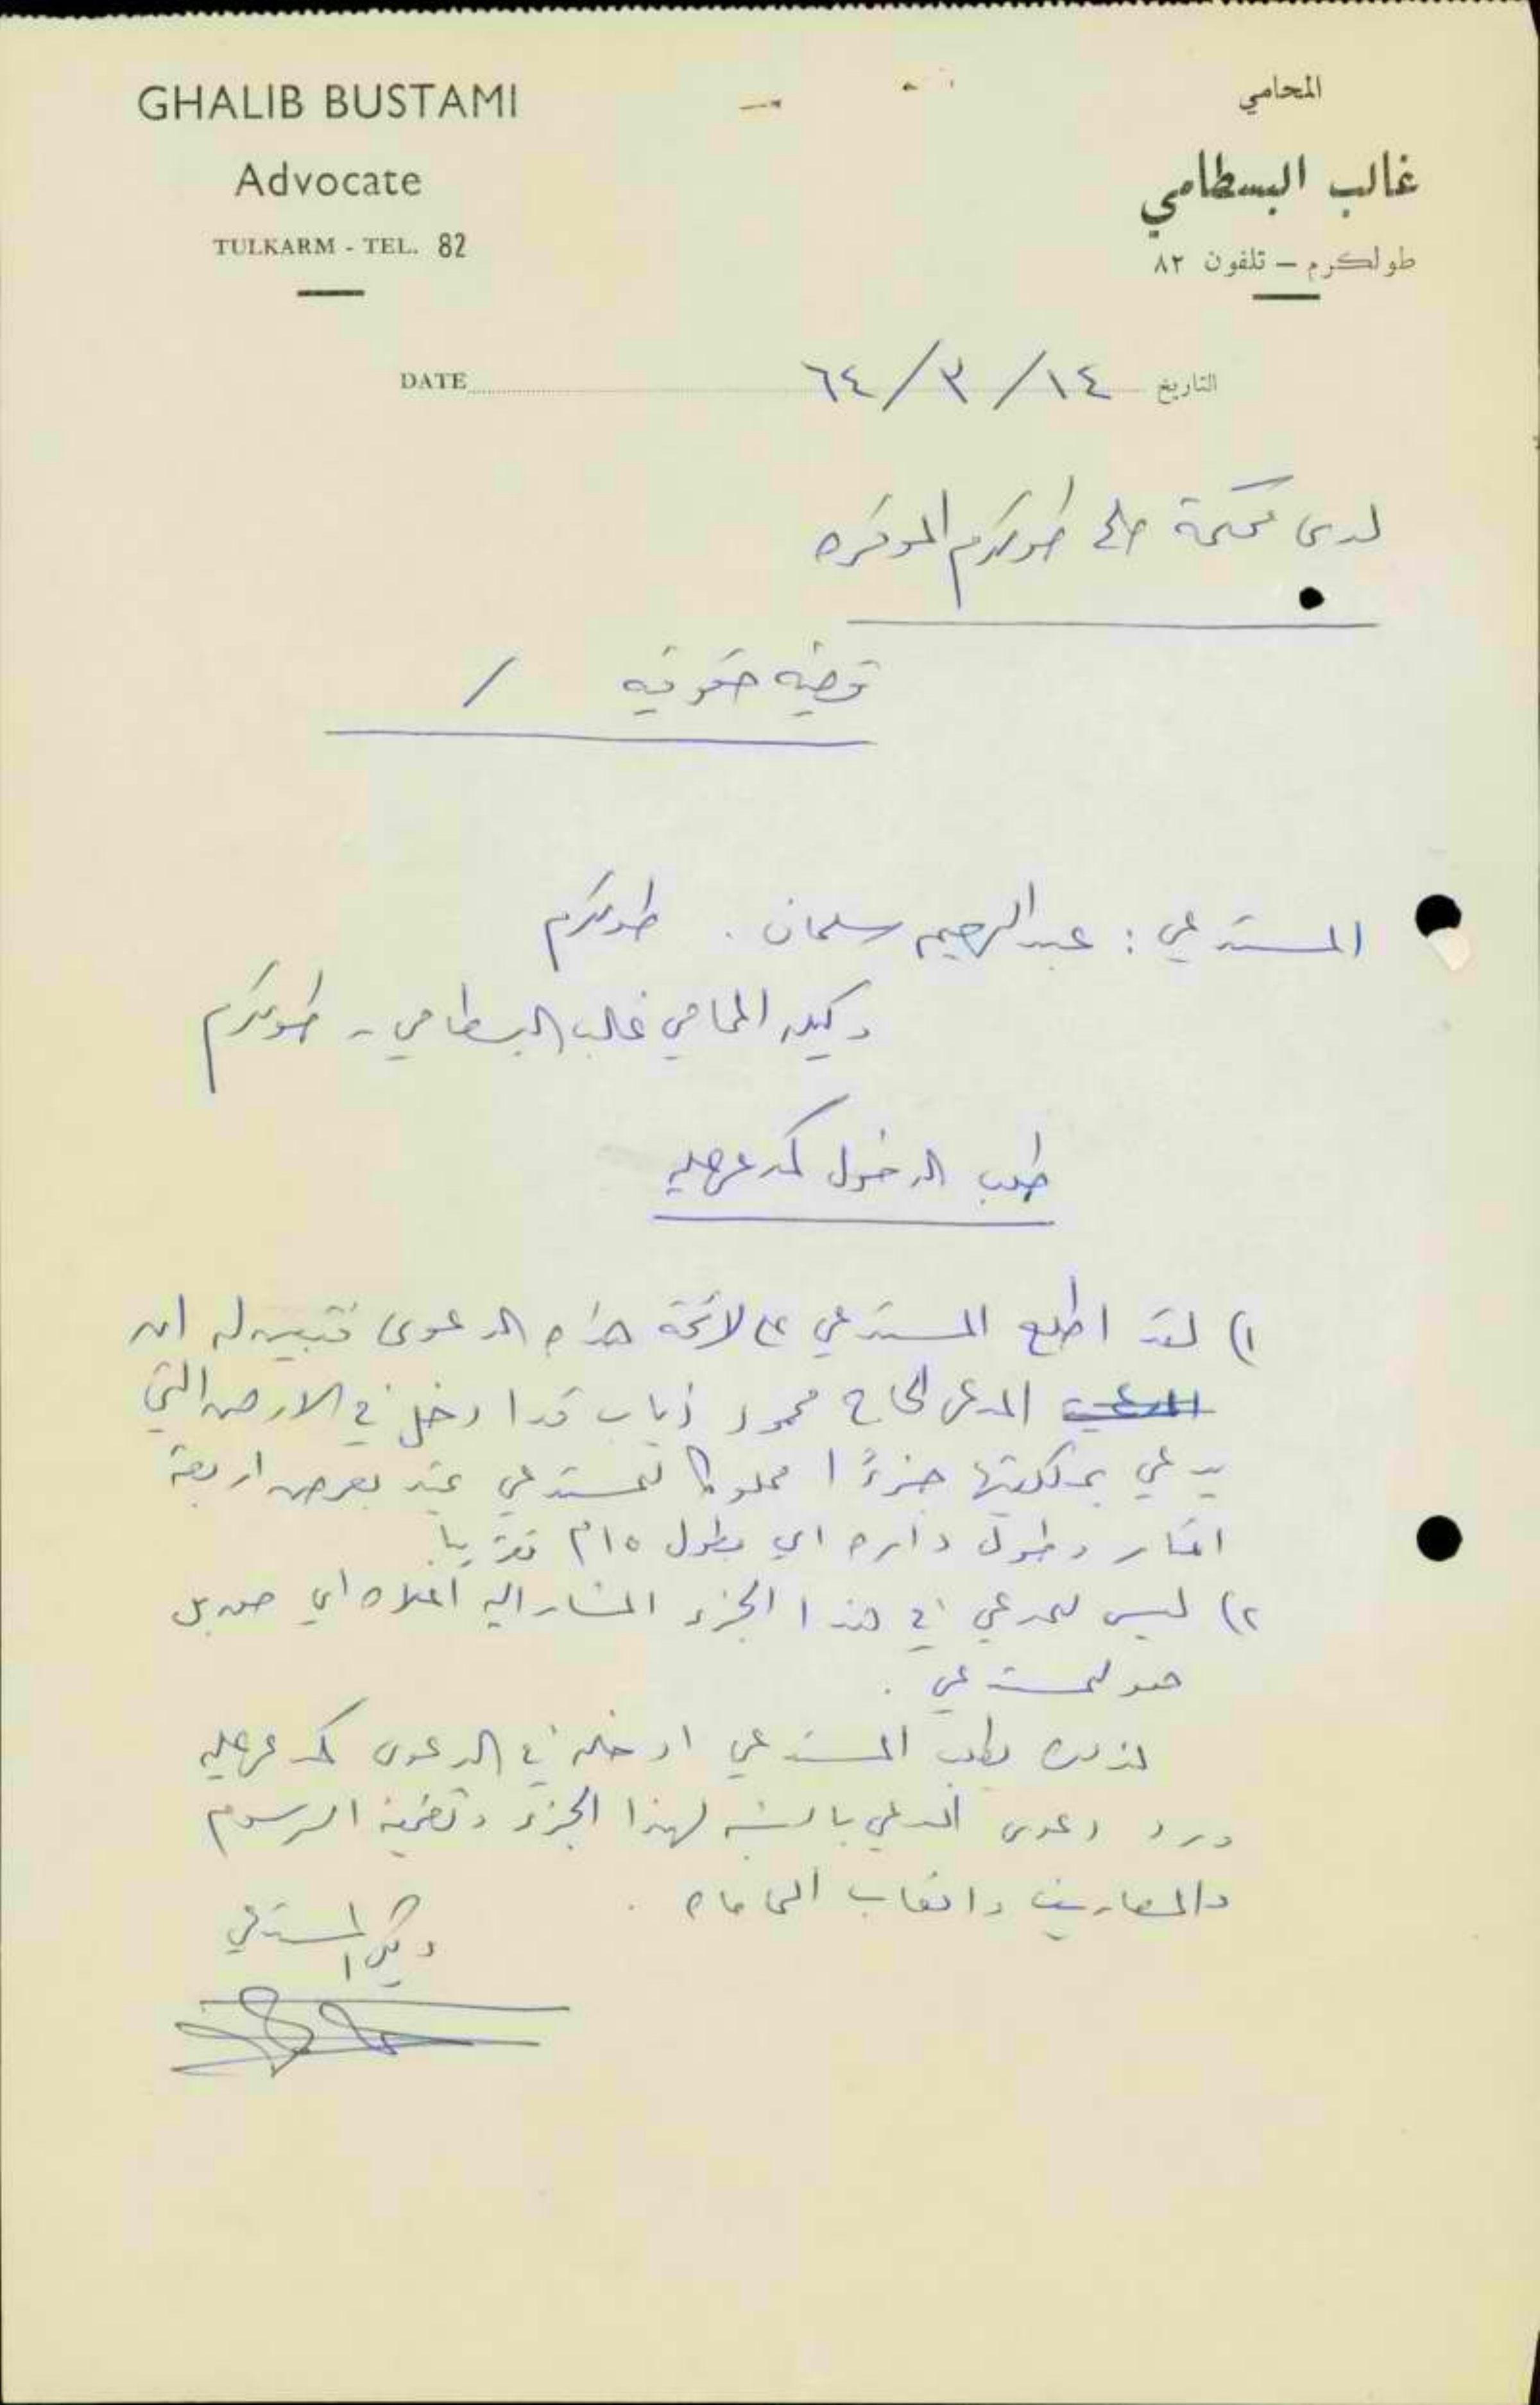 GHALIB BUSTAMI
Advocate
TULKARM - TEL. 82
المحامي
غالب البسطامي
طولكرم – تلفون ٨٢
DATE التاريخ ١٤/٣/٦٤
لدى محكمة صلح طولكرم الموقره
قضيه حقوقيه /
المستدعي : عبد الرحيم سلمان . طولكرم
وكيله المحامي غالب البسطامي - طولكرم
طلب الدخول كمدعى عليه
١) لقد اطلع المستدعي على لائحة هذه الدعوى فتبين له ان
المدعي المدعى الحاج محمود ذياب قد ادخل في الارض التي
يدعي بملكيتها جزءًا مملوكا للمستدعي يمتد بعرض اربعة
امتار وطول داره اي بطول ١٥ م تقريبا.
٢) ليس للمدعي في هذا الجزء المشار اليه اعلاه اي حق بل
هو للمستدعي .
لذلك يطلب المستدعي ادخاله في الدعوى كمدعى عليه
ورد دعوى المدعي بالنسبه لهذا الجزء وتضمينه الرسوم
والمصاريف واتعاب المحاماه .
وكيل المستدعي